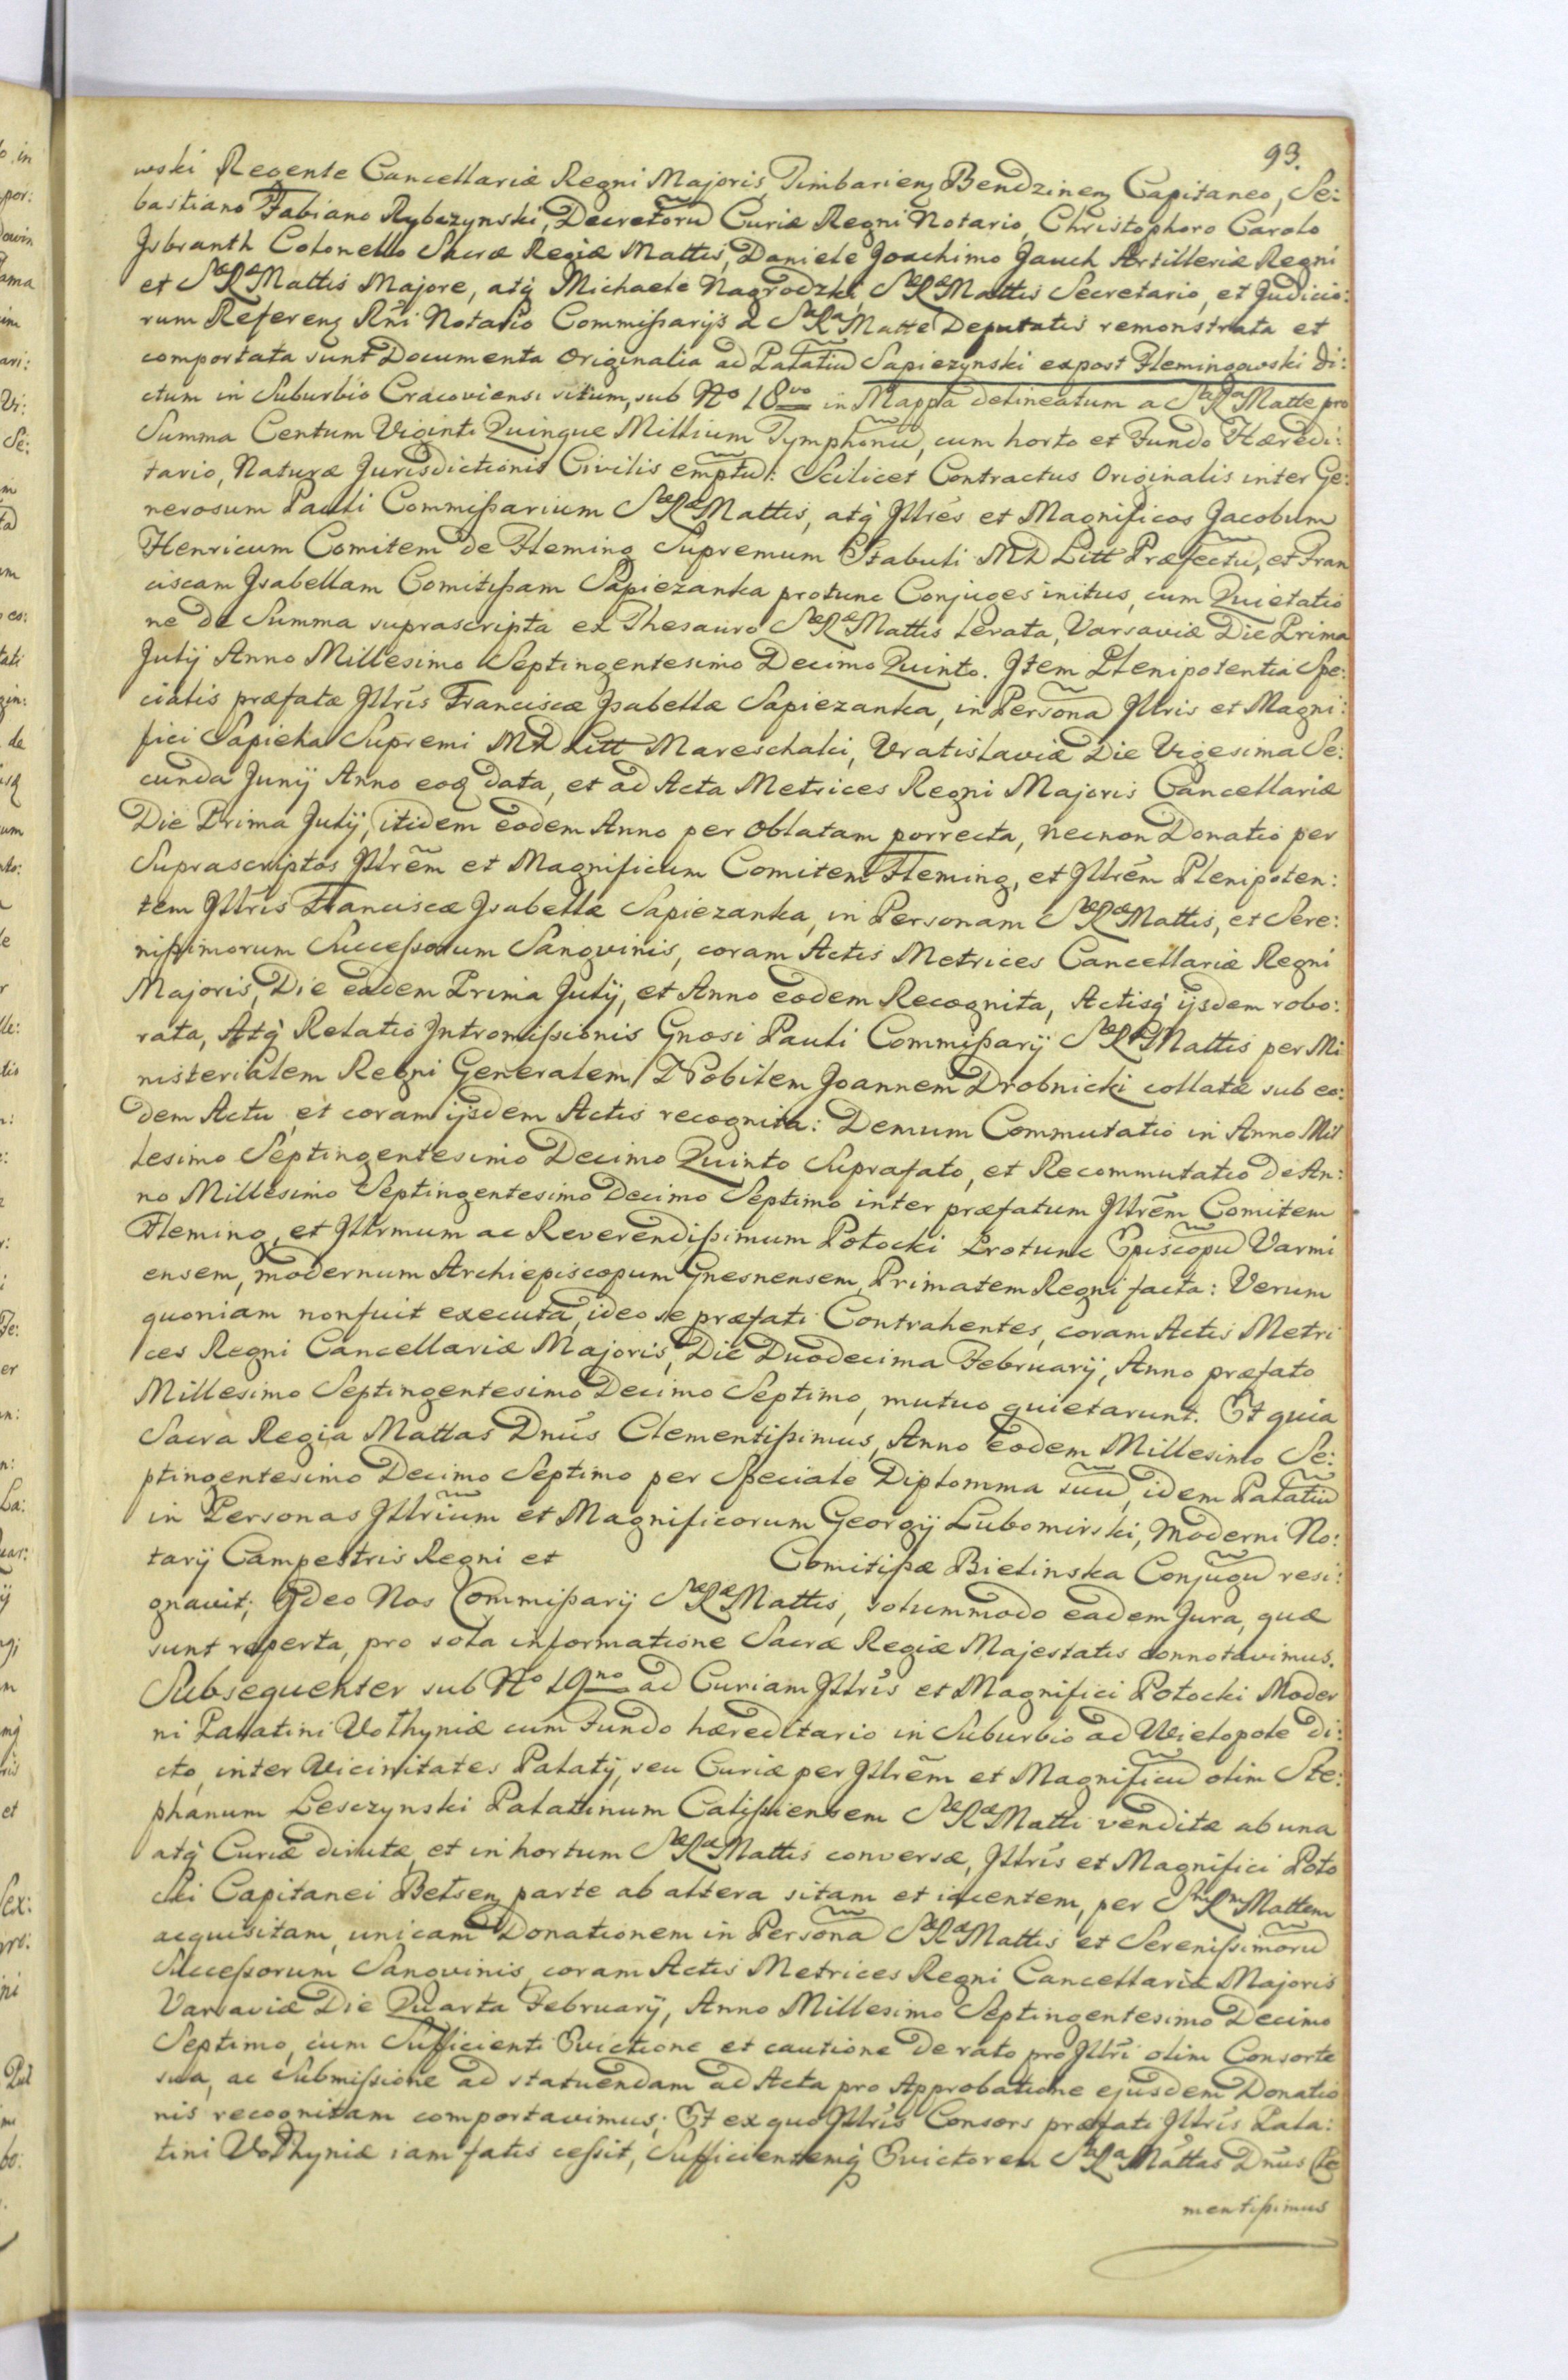 93.
wski Regente Cancellariæ Regni Majoris, Timbarienẽ Bendzinenẽ Capitaneo, Se:
bastiano Fabiano Rybczynski, Decretorũ Curiæ Regni Notario, Christophoro Carolo
Jsbranth Colonello Sacræ Regiæ Mattis, Daniele Joachimo Jauch Artilleriæ Regni
et SæRæMattis Majore, atq̃ Michaele Nagrodzki, SæRæMattis Secretario, et Judicio:
rum Referenẽ Rñi Notario Commißarijs a SaRaMatte Deputatis remonstrata et
comportata sunt Documenta Originalia ad Palatiũ Sapiezynski expost Flemingowski di:
ctum in Suburbio Cracoviensi situm, sub No 18vo in Mappa delineatum a SaRaMatte pro
Summa Centum Viginti Quinque Millium Tymphonũ, cum horto et Fundo Hæredi:
tario, Naturæ Jurisdictionis Civilis emptũ: Scilicet Contractus Originalis inter Ge:
nerosum Pauli Commißarium SæRæMattis, atq̃ Jllrẽs et Magnificos Jacobum
Henricum Comitem de Fleming Supremum Stabuli MD Litt Præfectũ, et Fran
ciscam Jsabellam Comitißam Sapiezanka protunc Conjuges initus, cum Quietatio
ne de Summa suprascripta ex Thesauro SæRæMattis levata, Varsaviæ Die Prima
Julij Anno Millesimo Septingentesimo Decimo Quinto. Jtem Plenipotentia Spe:
cialis præfatæ Jllris Franciscæ Jsabellæ Sapiezanka, in Personã Jllris et Magni:
fici Sapieha Supremi MD Litt Mareschalci, Vratislaviæ Die Vigesima Se:
cunda Junij Anno eod data, et ad Acta Metrices Regni Majoris Cancellariæ
Die Prima Julij, itidem eodem Anno per Oblatam porrecta, necnon Donatio per
Suprascriptos Jllrẽm et Magnificum Comitem Fleming, et Jllrẽm Plenipoten:
tem Jllris Franciscæ Jsabellæ Sapiezanka, in Personam SæRæMattis, et Sere:
nißimorum Succeßorum Sangvinis, coram Actis Metrices Cancellariæ Regni
Majoris, Die eadem Prima Julij, et Anno eodem Recognita, Actisq̃ ijsdem robo:
rata, Atq̃ Relatio Jntromißionis Gnosi Pauli Commißarij SæRæMattis per Mi
nisterialem Regni Generalem, Nobilem Joannem Drobnicki collatæ sub eo:
dem Actu et coram ijsdem Actis recognita: Demum Commutatio in Anno Mil
lesimo Septingentesimo Decimo Quinto Suprafato, et Recommutatio de An:
no Millesimo Septingentesimo Decimo Septimo inter præfatum Jllrẽm Comitem
Fleming, et Jllrmum ac Reverendißimum Potocki Protunc Episcopũ Varmi
ensem, modernum Archiepiscopum Gnesnensem, Primatem Regni facta: Verum
quoniam nonfuit executa, ideo se præfati Contrahentes, coram Actis Metri
ces Regni Cancellariæ Majoris, Die Duodecima Februarij, Anno præfato
Millesimo Septingentesimo Decimo Septimo, mutuo quietarunt. Et quia
Sacra Regia Mattas Dnus Clementißimus, Anno eodem Millesimo Se:
ptingentesimo Decimo Septimo per Speciale Diplomma suũ, idem Palatiũ
in Personas Jllrium et Magnificorum Georgij Lubomirski, Moderni No:
tarij Campestris Regni et Comitißæ Bielinska Conjugũ resi:
gnavit; Jdeo Nos Commißarij SæRæMattis, solummodo eadem Jura, quæ
sunt reperta, pro sola informatione Sacræ Regiæ Majestatis connotavimus.
Subsequenter sub No 19no ad Curiam Jllris et Magnifici Potocki Moder
ni Palatini Volhyniæ cum Fundo hæreditario in Suburbio ad Wielopole di:
cto, inter Vicinitates Palatij, seu Curiæ per Jllrẽm et Magnificũ olim Ste:
phanum Lesczynski Palatinum Calißiensem SæRæMatti venditæ ab una
atq̃ Curiæ dirutæ, et in hortum SæRæMattis conversæ, Jllris et Magnifici Poto
cki Capitanei Belsenẽ parte ab altera sitam et iacentem, per SmRmMattem
acquisitam, unicam Donationem in Personã SæRæMattis et Serenißimorũ
Succeßorum Sangvinis, coram Actis Metrices Regni Cancellariæ Majoris
Varsaviæ Die Quarta Februarij, Anno Millesimo Septingentesimo Decimo
Septimo, cum Sufficienti Evictione et cautione de rato pro Jllri olim Consorte
sua, ac Submißione ad statuendam ad Acta pro Approbatione ejusdem Donatio
nis recognitam comportavimus; Et ex quo Jllris Consors præfati Jllris Pala:
tini Volhyniæ iam fatis ceßit, Sufficientemq̃ Evictorem SaRaMattas Dnus Cle
mentißimus